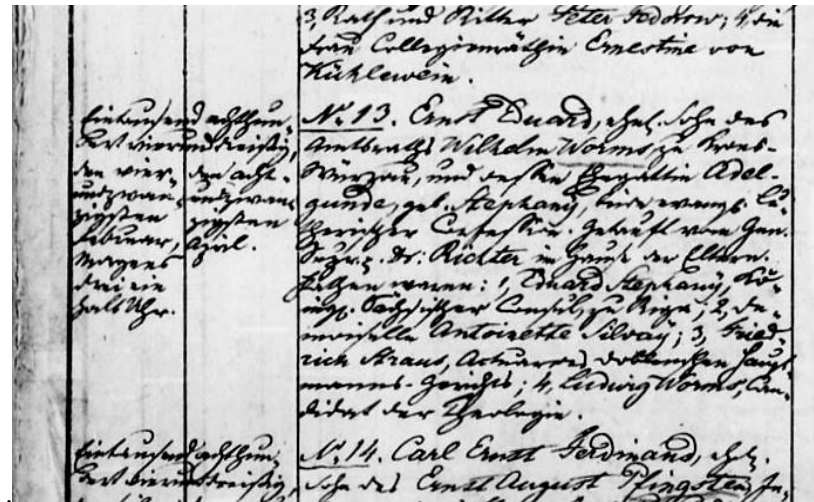 3, Rath und Ritter Peter Fedorow; 4, die
Frau Collegienräthin Ernestine von
Küchlewein.
Eintausend achthun-
dert vierunddreißig,
den vier-
undzwan-
zigsten
Februar,
Morgens
drei ein
halb Uhr.
den acht-
undzwan-
zigsten
April.
No 13. Ernst Eduard, ehel. Sohn des
Amtsraths Wilhelm Worms zu Krons-
Würzau, und dessen Ehegattin Adel-
gunde, geb. Stephany, beide evang. lu-
therischer Confession. Getauft vom Gen.
Supr. Dr. Richter im Hause der Eltern.
Pathen waren: 1, Eduard Stephany, Kö-
nigl. Sächsischer Consul zu Riga; 2, De-
moiselle Antoinette Silvay; 3, Fried-
rich Straus, Actuar des Doblenschen Haupt-
manns-Gerichts; 4, Ludwig Worms, Can-
didat der Theologie.
Eintausend achthun-
dert vierunddreißig
No 14. Carl Ernst Ferdinand, ehel.
Sohn des Ernst August Pfingsten,